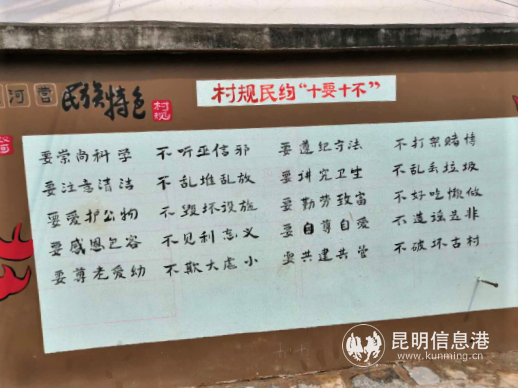 河营 民族特色 村规
村规民约"十要十不"
要崇尚科学 不听亚信邪 要遵纪守法 不打架赌博
要注意清洁 不乱堆乱放 要讲究卫生 不乱丢垃圾
要爱护公物 不毁坏设施 要勤劳致富 不好吃懒做
要感恩包容 不见利忘义 要自尊自爱 不造谣是非
要尊老爱幼 不欺大虐小 要共建共管 不破坏古村
昆明信息港
www.kunming.cn